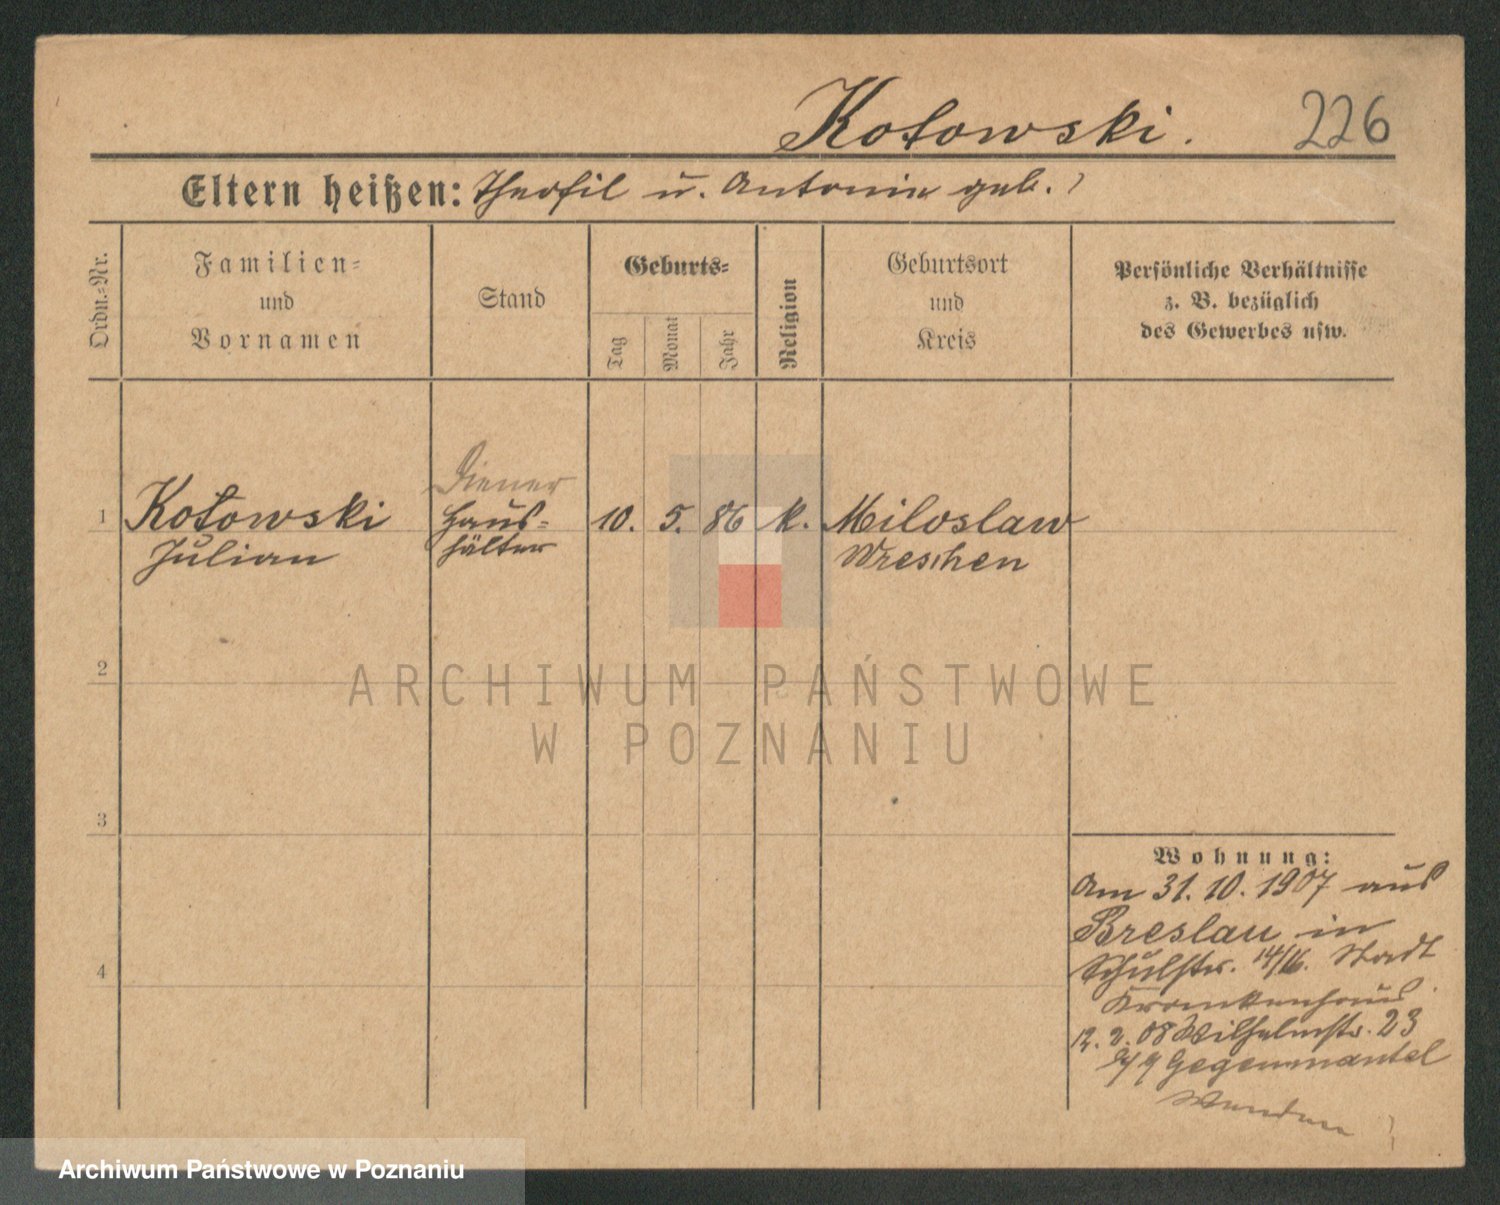 Kotowski. 226
Eltern heißen: Theofil u. Antonie geb. ?
Ordn.=Nr.
Familien=
und
Vornamen
Stand
Geburts=
Tag
Monat
Jahr
Religion
Geburtsort
und
Kreis
Persönliche Verhältnisse
z. B. bezüglich
des Gewerbes usw.
Diener
1 Kotowski Haus= 10. 5. 86 k. Miloslaw
Julian hälter Wreschen
2
3
4
ARCHIWUM PAŃSTWOWE
W POZNANIU
Wohnung:
Am 31. 10. 1907 aus
Breslau in
Schulstr. 14/16. Stadt
Krankenhaus.
12. 2. 08 Wilhelmstr. 23
Gegenmantel
Wenden
Archiwum Państwowe w Poznaniu